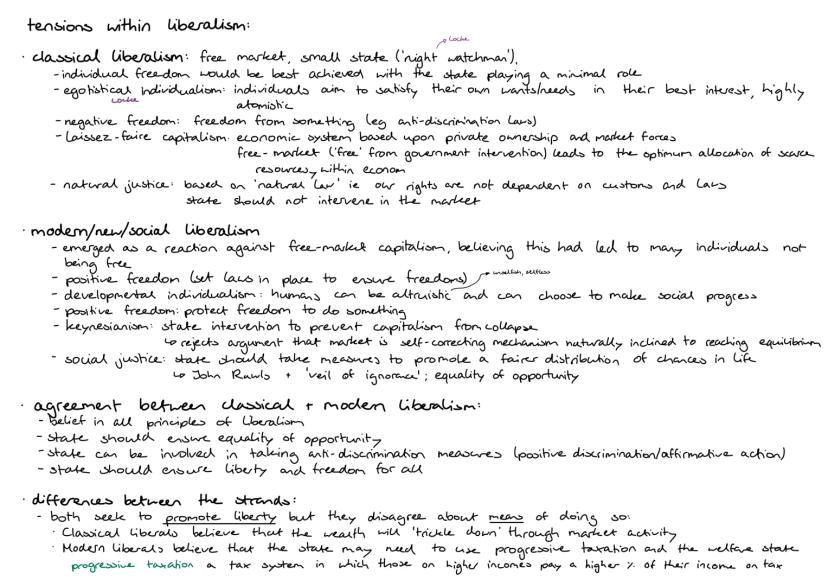 tensions within liberalism:
Locke
· classical liberalism: free market, small state ('night watchman'),
- individual freedom would be best achieved with the state playing a minimal role
- egotistical individualism: individuals aim to satisfy their own wants/needs in their best interest, highly
Locke
atomistic
- negative freedom: freedom from something (eg anti-discrimination laws)
- laissez-faire capitalism: economic system based upon private ownership and market forces
free-market ('free' from government intervention) leads to the optimum allocation of scarce
resources, within econom
- natural justice: based on 'natural law' ie our rights are not dependent on customs and laws
state should not intervene in the market
· modern/new/social liberalism
- emerged as a reaction against free-market capitalism, believing this had led to many individuals not
being free
- positive freedom (set laws in place to ensure freedoms)
unselfish, selfless
- developmental individualism: humans can be altruistic and can choose to make social progress
- positive freedom: protect freedom to do something
- keynesianism: state intervention to prevent capitalism from collapse
↳ rejects argument that market is self-correcting mechanism naturally inclined to reaching equilibrium
- social justice: state should take measures to promote a fairer distribution of chances in life
↳ John Rawls + 'veil of ignorance'; equality of opportunity
· agreement between classical + modern liberalism:
- belief in all principles of liberalism
- state should ensure equality of opportunity
- state can be involved in taking anti-discrimination measures (positive discrimination/affirmative action)
- state should ensure liberty and freedom for all
· differences between the strands:
- both seek to promote liberty but they disagree about means of doing so:
· Classical liberals believe that the wealth will 'trickle down' through market activity
· Modern liberals believe that the state may need to use progressive taxation and the welfare state
progressive taxation a tax system in which those on higher incomes pay a higher % of their income on tax